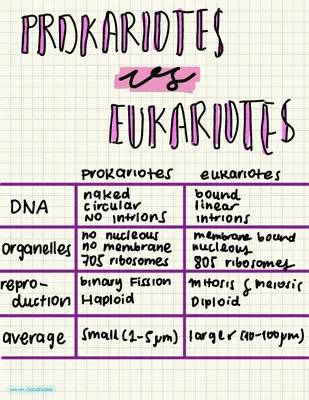 PROKARIOTES
vs
EUKARIOTES
prokariotes eukariotes
DNA
naked
circular
NO intrions
bound
linear
intrions
organelles
no nucleous
no membrane
70S ribosomes
membrane bound
nucleous
80S ribosomes
repro-
duction
binary Fission
Haploid
mitosis & meiosis
Diploid
average
small (1-5µm)
larger (10-100µm)
Made with Goodnotes